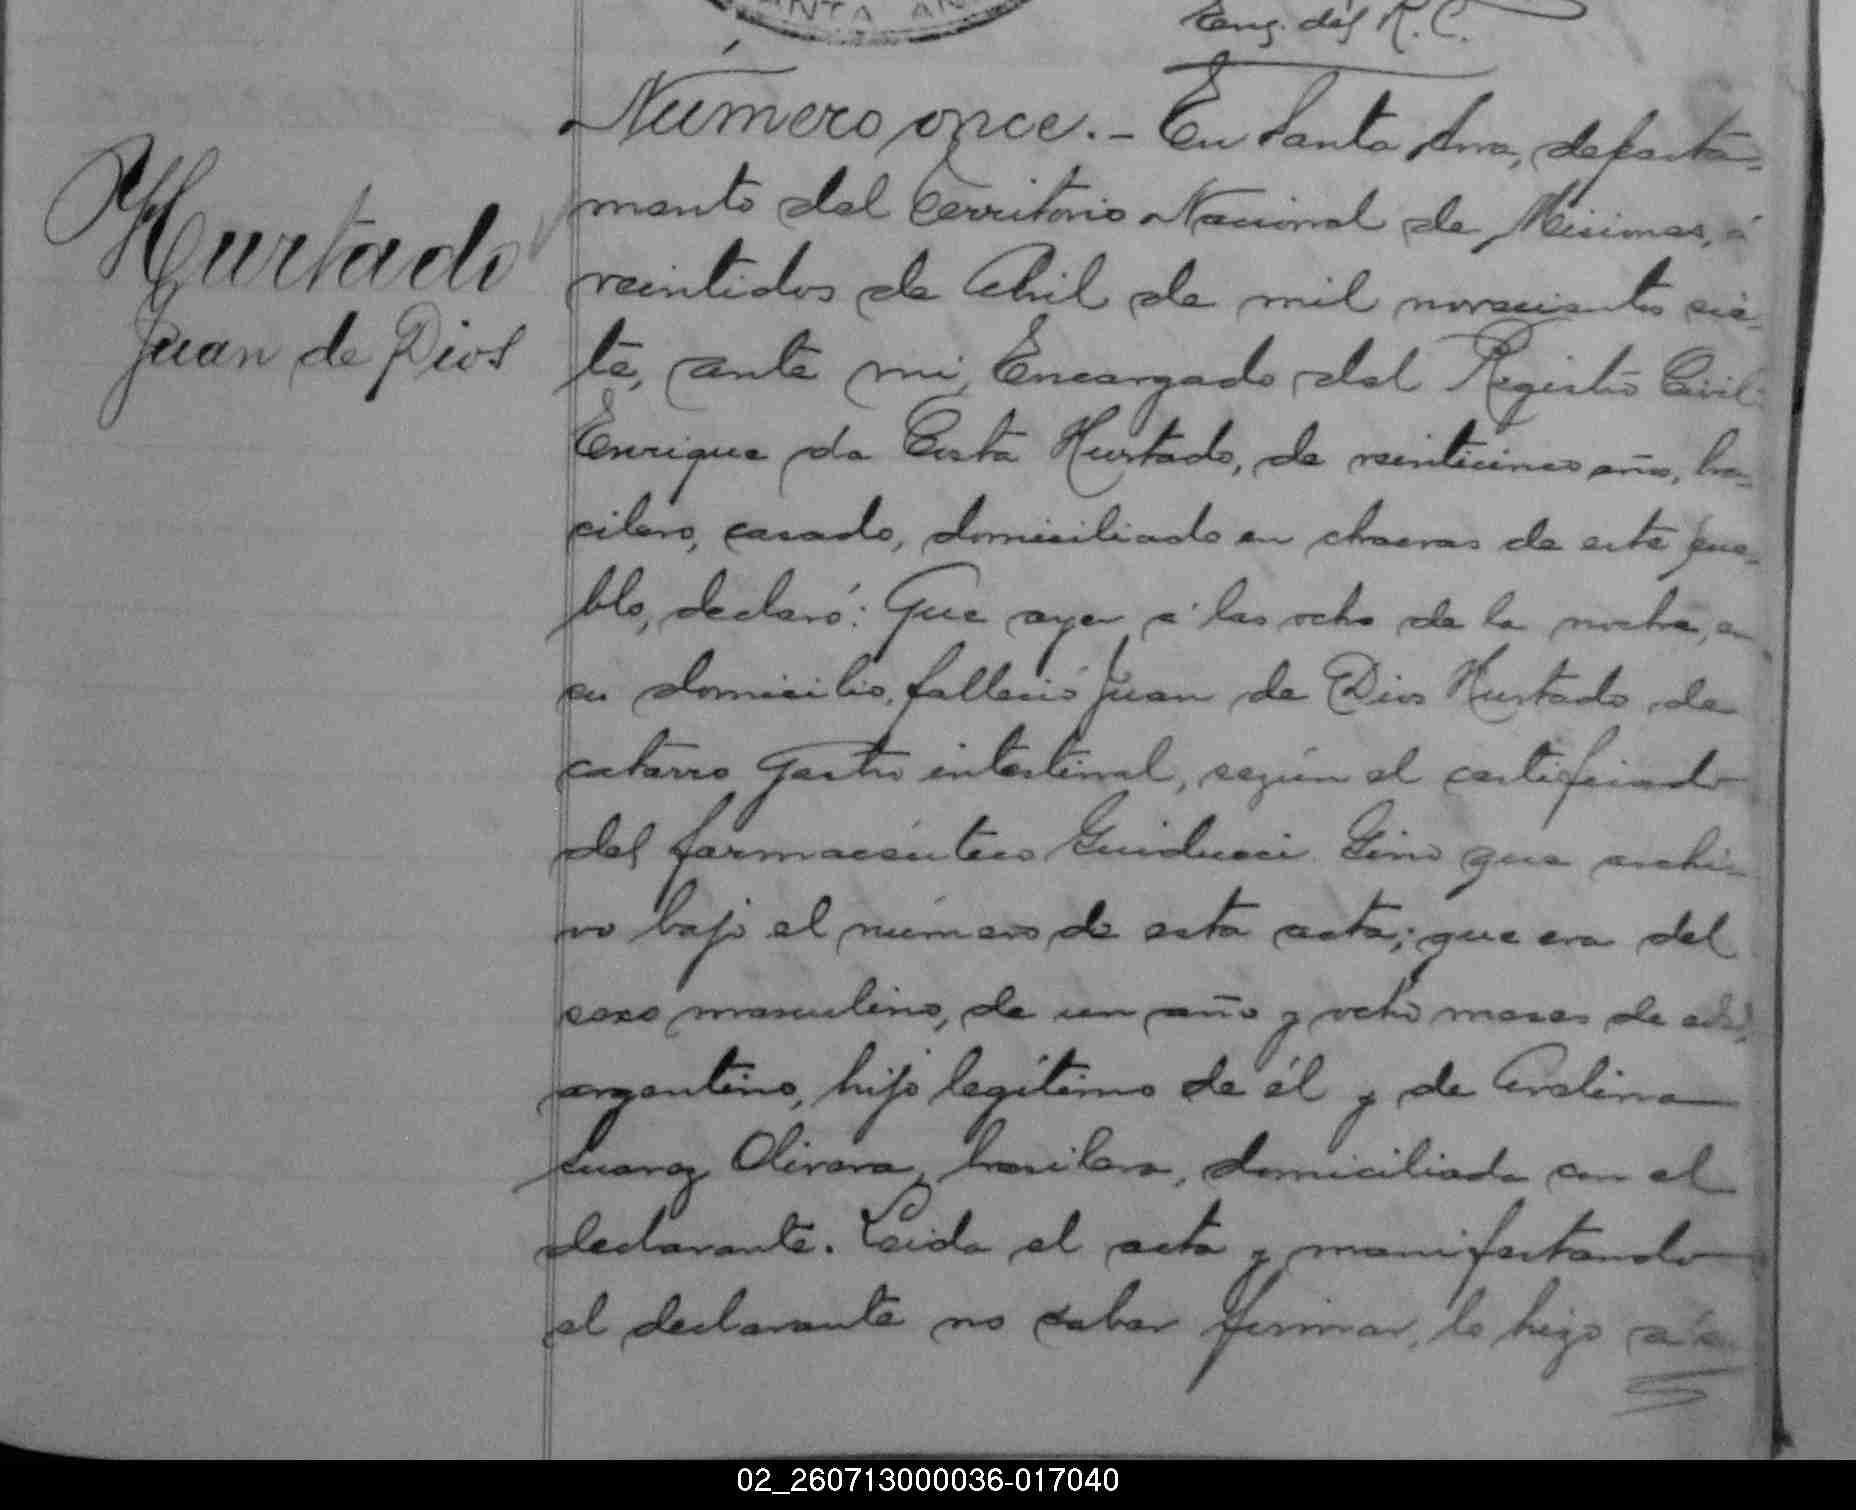 SANTA ANA
Eng. del R. C.
Número once. - En Santa Ana, departa-
mento del Territorio Nacional de Misiones, á
veintidos de Abril de mil novecientos sie-
te, ante mi, Encargado del Registro Civil
Enrique da Costa Hurtado, de veinticinco años, bra-
silero, casado, domiciliado en chacras de este pue-
blo, declaró: Que ayer á las ocho de la noche, en
su domicilio, falleció Juan de Dios Hurtado de
catarro Gastro intestinal, según el certificado
del farmacéutico Guiducci Gino que archi-
vo bajo el número de esta acta; que era del
sexo masculino, de un año y ocho meses de edad,
argentino, hijo legítimo de él y de Avelina
Suarez Olivera, brasilera, domiciliada con el
declarante. Leida el acta y manifestando
el declarante no saber firmar, lo hizo a su
Hurtado
Juan de Dios
02_260713000036-017040